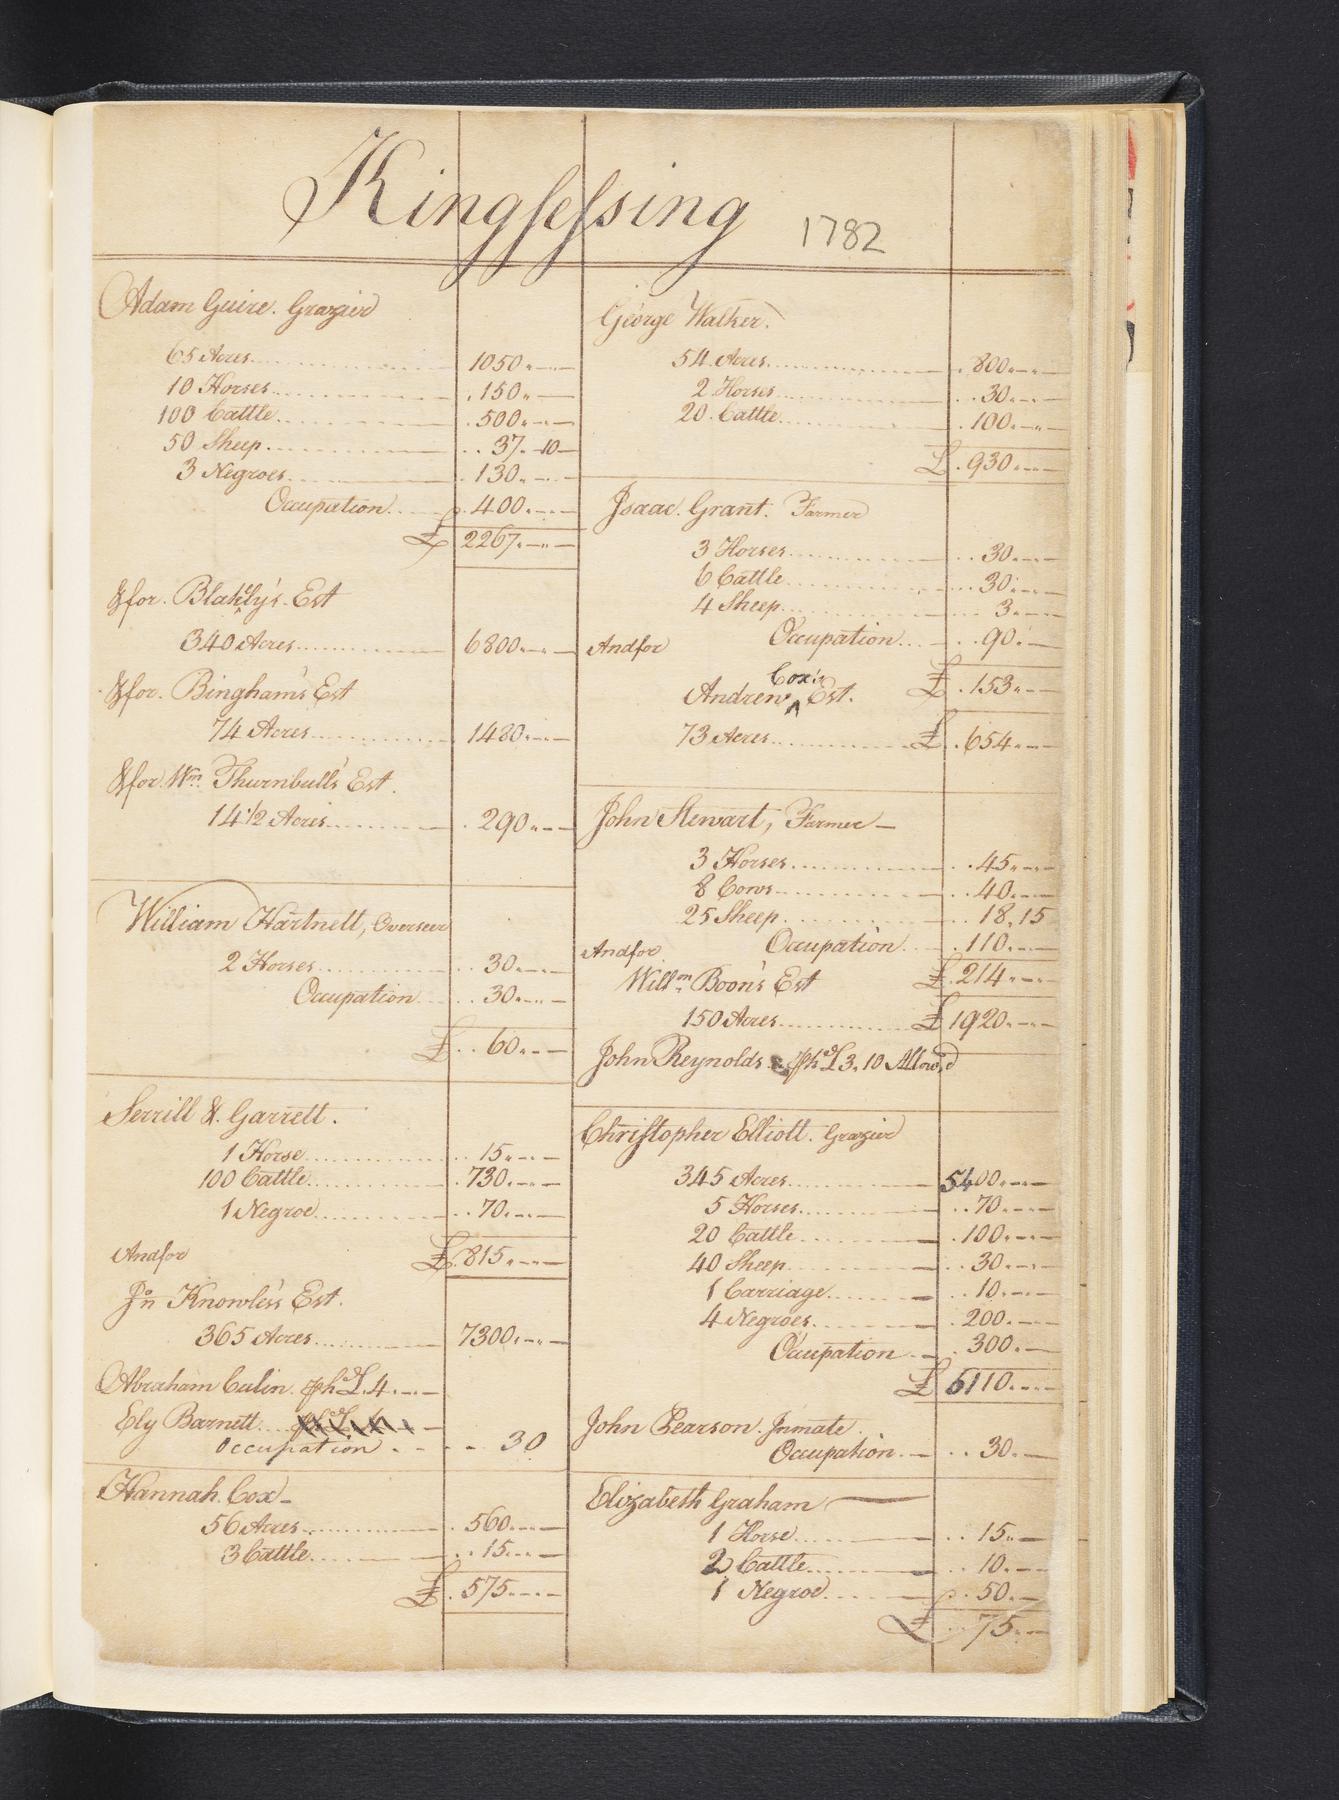 Kingsessing
1782
Adam Guire. Grazier
65 Acres 1050
10 Horses 150
100 Cattle 500
50 Sheep 37.10
3 Negroes 130
Occupation 400
£ 2267
&for. Blakely's Est
340 Acres 6800
&for. Bingham's Est
74 Acres 1480
&for. Wm. Thurnbull's Est.
14 1/2 Acres 290
William Hartnett, Overseer
2 Horses 30
Occupation 30
£ 60
Serrill & Garrett.
1 Horse 15
100 Cattle 730
1 Negroe 70
Andfor £ 815
Jn Knowles's Est.
365 Acres 7300
Abraham Culin. phd £.4
Ely Barnett
Occupation 30
Hannah Cox
56 Acres 560
3 Cattle 15
£ 575
George Walker.
54 Acres 800
2 Horses 30
20 Cattle 100
£ 930
Isaac Grant. Farmer
3 Horses 30
6 Cattle 30
4 Sheep 3
Andfor Occupation 90
Andrew Cox's Est. £ 153
73 Acres £ 654
John Stewart, Farmer
3 Horses 45
8 Cows 40
25 Sheep 18.15
Andfor Occupation 110
Willm Boon's Est £ 214
150 Acres £ 1920
John Reynolds phd £3.10 Allow'd
Christopher Elliott. Grazier
345 Acres 5400
5 Horses 70
20 Cattle 100
40 Sheep 30
1 Carriage 10
4 Negroes 200
Occupation 300
£ 6110
John Pearson. Inmate.
Occupation 30
Elizabeth Graham
1 Horse 15
2 Cattle 10
1 Negroe 50
£ 75